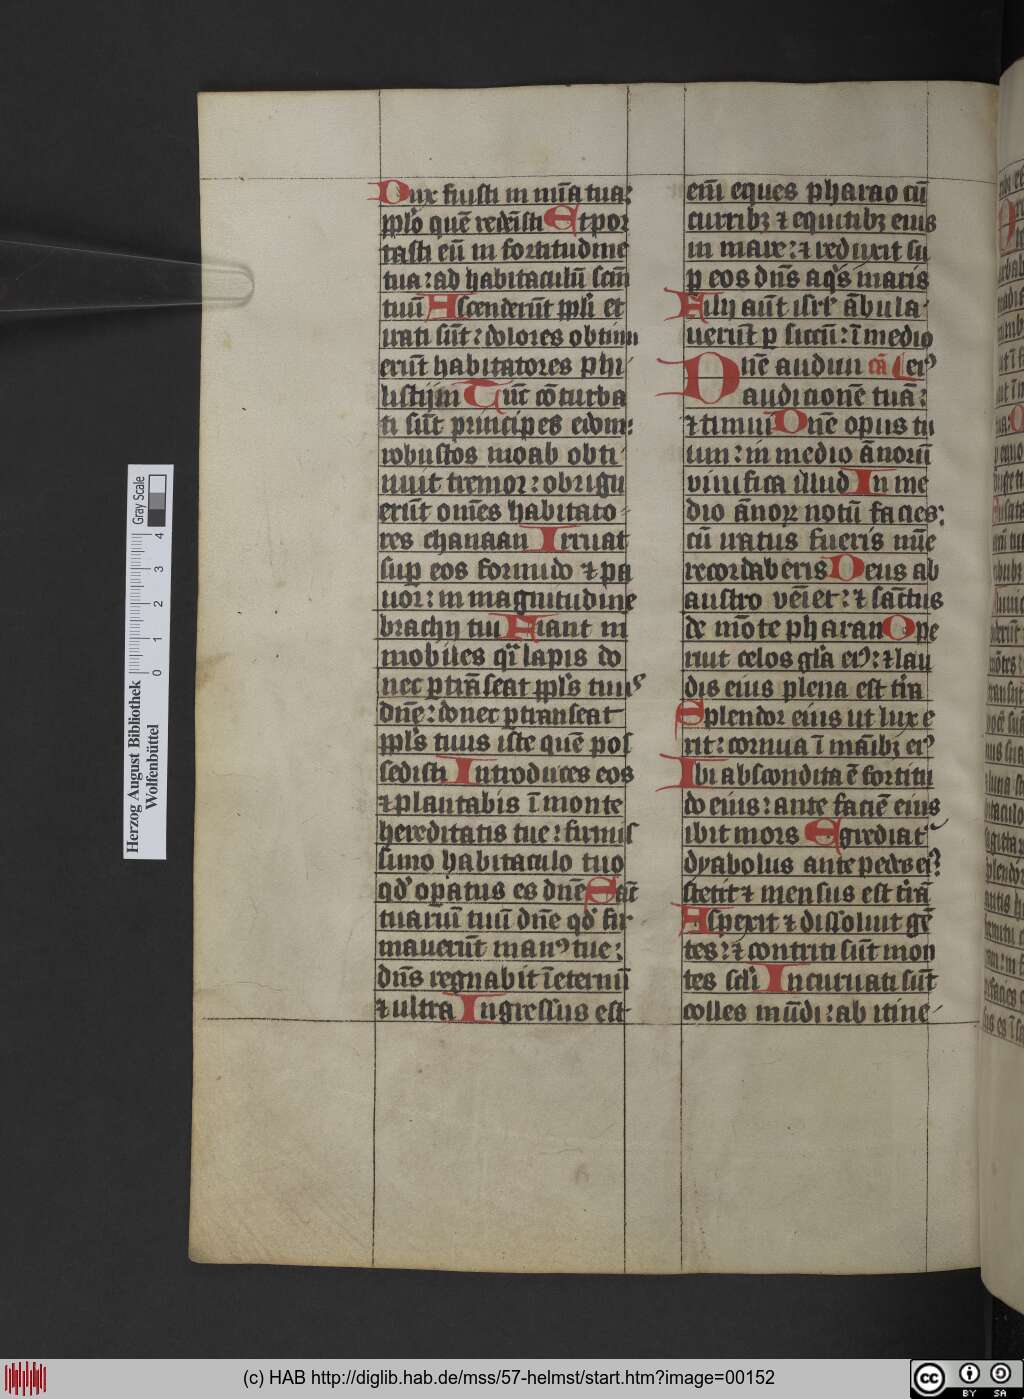 Dux fuisti in mīa tua:
pplo quē redēisti Et por
tasti eū in fortitudine
tua: ad habitaculū scm̄
tuū Ascenderūt ppli et
irati sūt: dolores obtinu
erūt habitatores phi
listijm Tūc cōturba
ti sūt principes edom:
robustos moab obti
nuit tremor: obrigu
erūt om̄es habitato-
res chanaan Irruat
sup eos formido ⁊ pa
uor: in magnitudine
brachij tui Fiant in
mobiles qͥ lapis do
nec ptrāseat ppls tuus
dn̄e: donec ptranseat
ppls tuus iste quē pos
sedisti Introduces eos
⁊ plantabis ī monte
hereditatis tue: firmis
simo habitaculo tuo
qd' opatus es dn̄e Sāct
tuariū tuū dn̄e qd' fir
mauerūt manꝰ tue:
dn̄s regnabit ī eternū
⁊ ultra Ingressus est
em̄ eques pharao cū
curribꝫ ⁊ equitibꝫ eius
in mare: ⁊ reduxit su
p eos dn̄s aqͣs maris
Filij aūt isrl' ābula
uerūt p siccū: ī medio
Dn̄e audiui cā Ieiꝰ
auditionē tuā:
⁊ timui Dn̄e opus tu
um: in medio ānorū
viuifica illud In me
dio ānoꝝ notū facies:
cū iratus fueris mīe
recordaberis Deus ab
austro vēiet: ⁊ sāctus
de mōte pharan Ope
ruit celos glīa eiꝰ: ⁊ lau
dis eius plena est t'ra
Splendor eius ut lux e
rit: cornua ī māibꝫ eiꝰ
Ibi abscondita ē fortitu
do eius: ante faciē eius
ibit mors Egrediat'
dyabolus ante pedes eiꝰ
stetit ⁊ mensus est t'rā
Aspexit ⁊ dissoluit gē
tes: ⁊ contriti sūt mon
tes scl'i Incuruati sūt
colles mūdi: ab itine
Herzog August Bibliothek
Wolfenbüttel
0 1 2 3 4
Gray Scale
(c) HAB http://diglib.hab.de/mss/57-helmst/start.htm?image=00152
cc BY SA